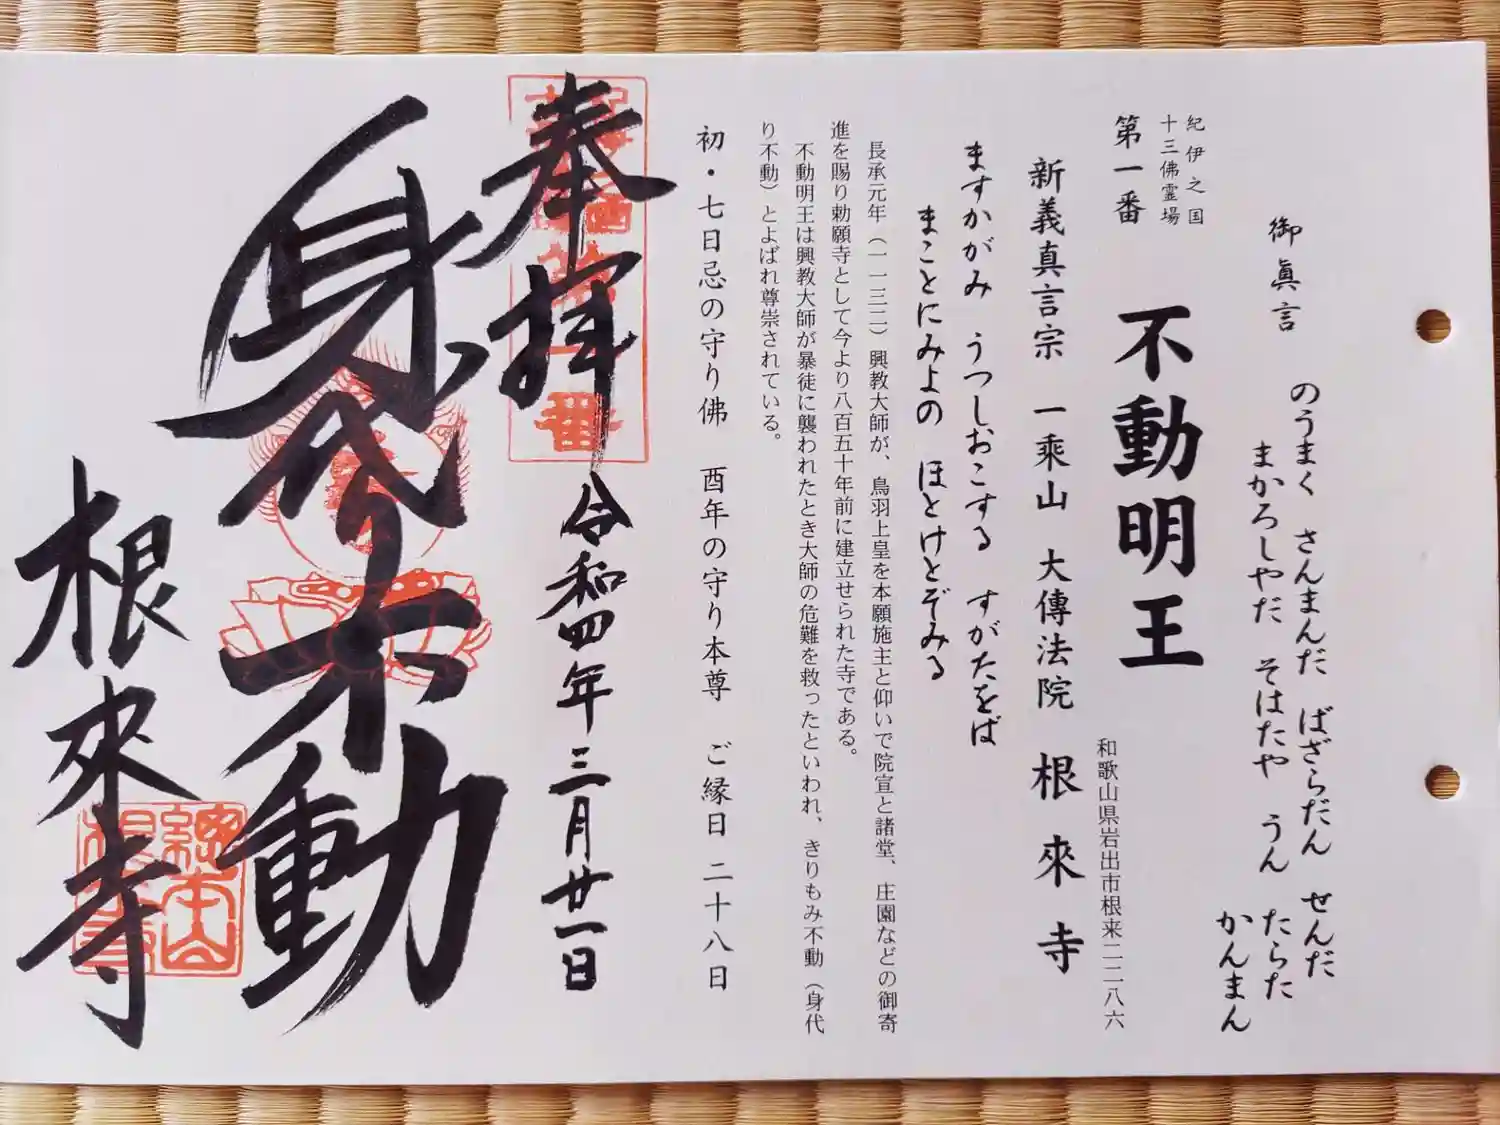 御眞言
のうまく さんまんだ ばざらだん せんだ
まかろしやだ そはたや うん たらた
かんまん
紀伊之国
十三佛霊場
第一番 不動明王
和歌山県岩出市根来二二八六
新義真言宗 一乘山 大傳法院 根來寺
ますかがみ うつしおこする すがたをば
まことにみよの ほとけとぞみる
長承元年（一一三二）興教大師が、鳥羽上皇を本願施主と仰いで院宣と諸堂、庄園などの御寄
進を賜り勅願寺として今より八百五十年前に建立せられた寺である。
不動明王は興教大師が暴徒に襲われたとき大師の危難を救ったといわれ、きりもみ不動（身代
り不動）とよばれ尊崇されている。
初・七日忌の守り佛 酉年の守り本尊 ご縁日 二十八日
奉拝 令和四年三月廿一日
身代不動
根來寺
總本山
根来寺